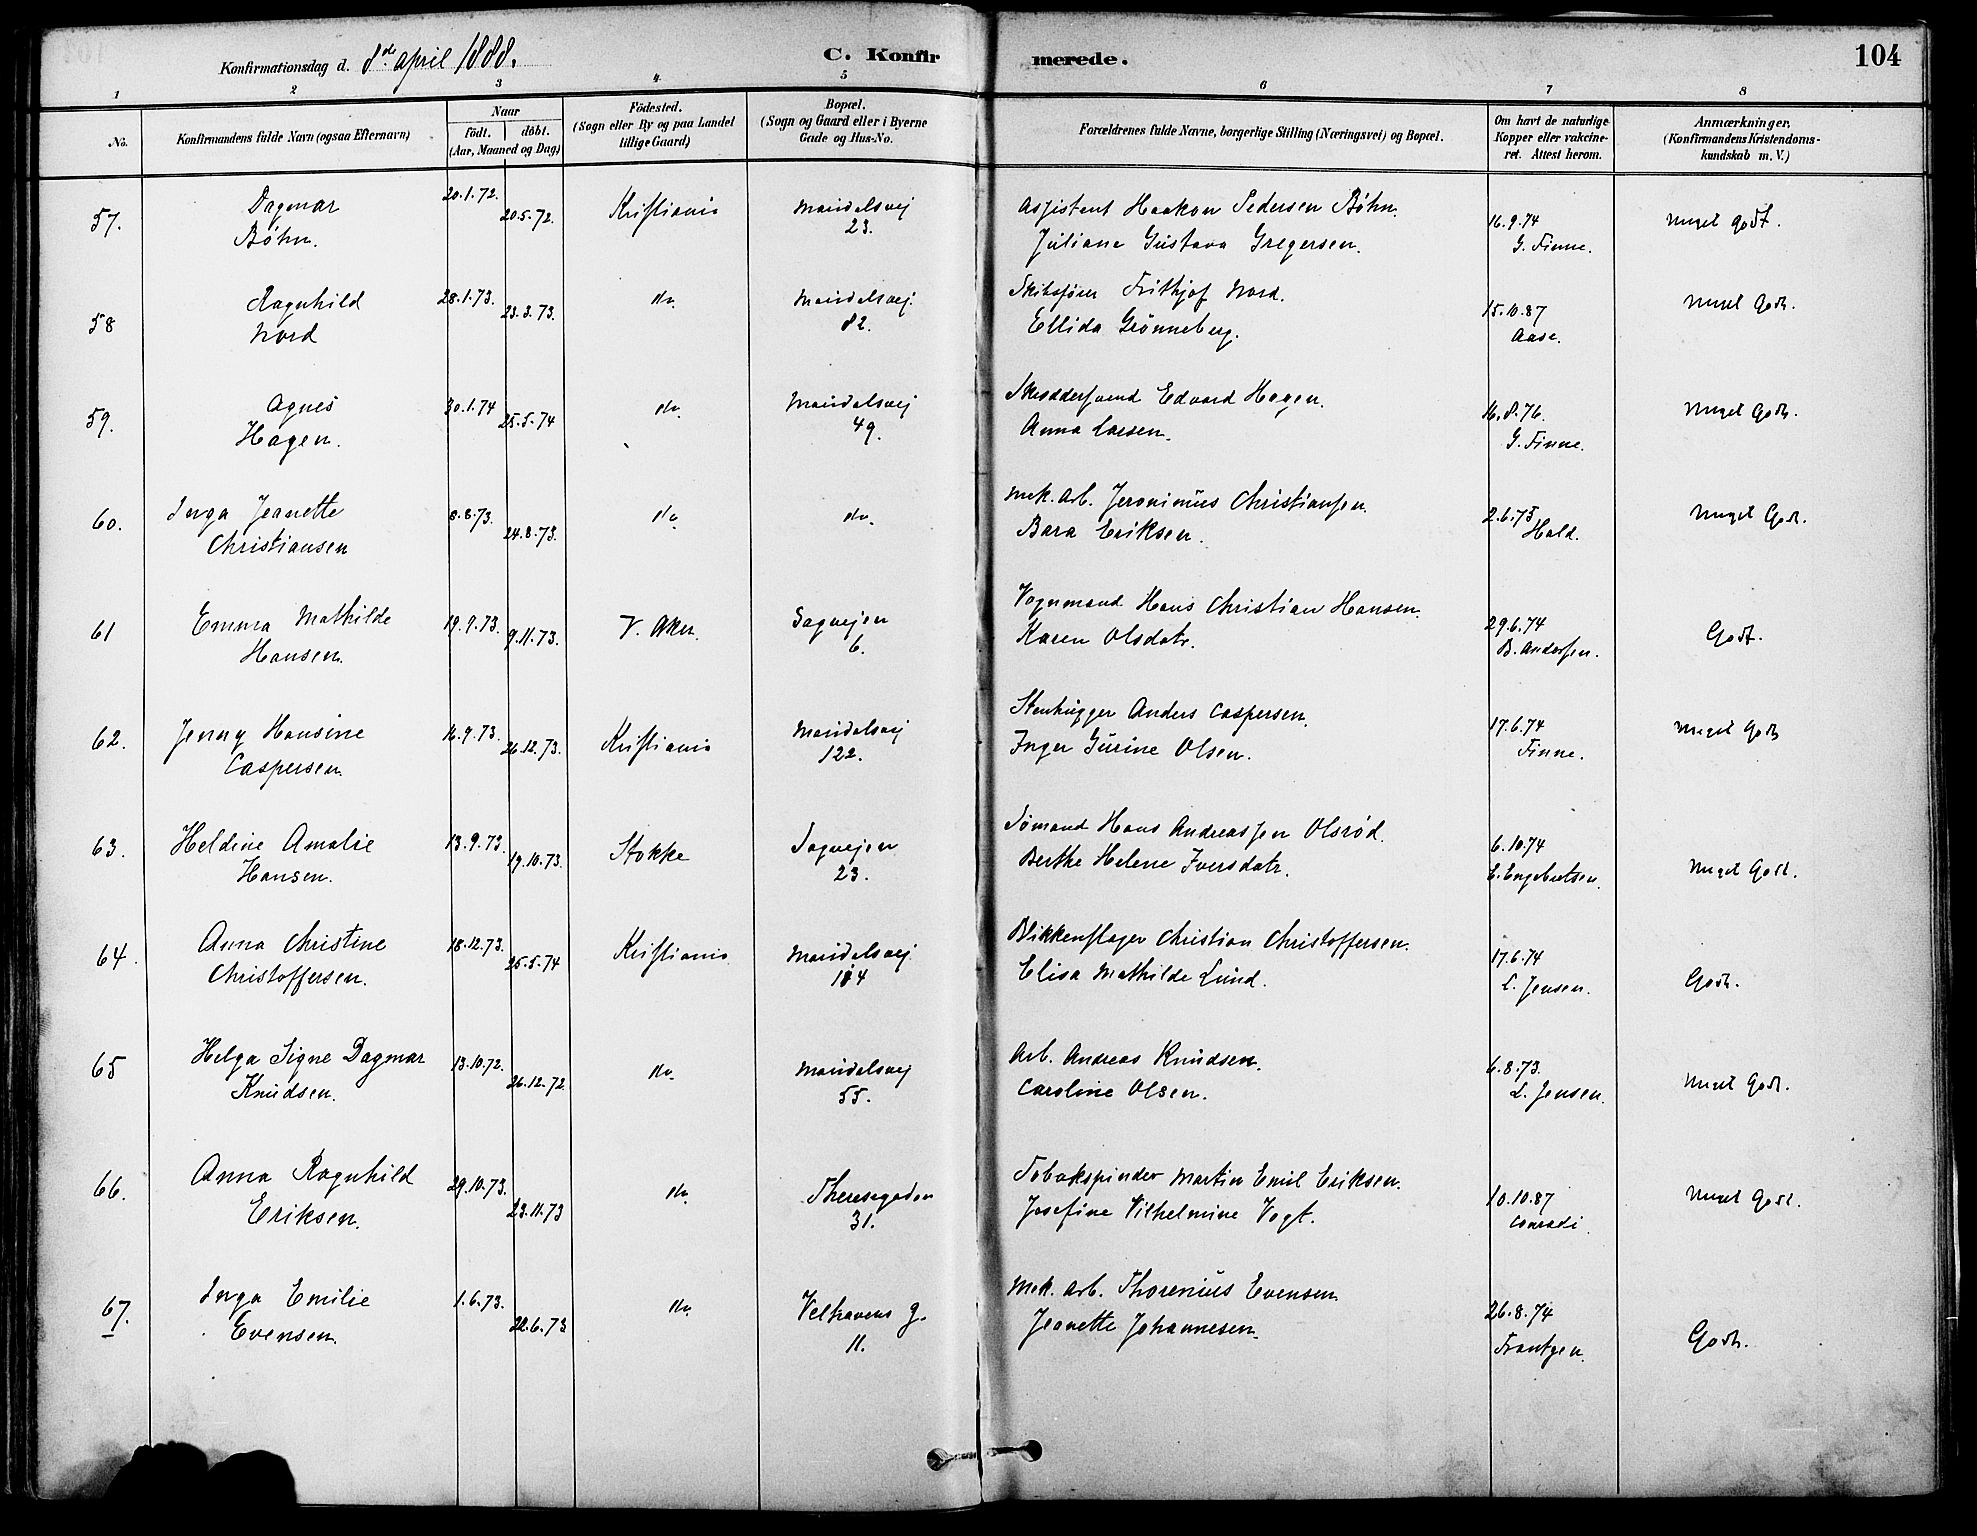 Konfirmationsdag d. 8de april 1888.
C. Konfirmerede.
104
1 2 3 4 5 6 7 8
No.
Konfirmandens fulde Navn (ogsaa Efternavn)
Naar
födt. döbt.
(Aar, Maaned og Dag)
Födested.
(Sogn eller By og paa Landet
tillige Gaard)
Bopæl.
(Sogn og Gaard eller i Byerne
Gade og Hus-No.
Forældrenes fulde Navne, borgerlige Stilling (Næringsvei) og Bopæl.
Om havt de naturlige
Kopper eller vakcine-
ret. Attest herom.
Anmærkninger.
(Konfirmandens Kristendoms-
kundskab m. V.)
57. Dagmar 20.1.72. 20.5.72. Kristiania Maridalsvej Assistent Haakon Pedersen Bøhn. 16.9.74 Meget godt.
Bøhn. 23. Juliane Gustava Gregersen. G. Finne.
58 Ragnhild 28.1.73. 23.3.73. do. Maridalsvej. Skibsfører Frithjof Nord. 15.10.87 Meget Godt.
Nord 82. Ellida Grønneberg. Aase.
59. Agnes 30.1.74 25.5.74 do. Maridalsvej Edvard Hagen. 16.8.76. Meget Godt.
Hagen. 49. Anna Larsen. G. Finne.
60. Inga Jeanette 8.8.73. 24.8.73. do. do. Mek. Arb. Jeronimus Christiansen. 2.6.75 Meget Godt.
Christiansen Bara Eriksen. Hald.
61 Emma Mathilde 19.9.73. 9.11.73. V. Aker. Sagvejen Vognmand Hans Christian Hansen. 29.6.74 Godt.
Hansen. 6. Karen Olsdatr. B. Andersen.
62. Jenny Hansine 16.9.73. 26.12.73. Kristiania Maridalsvej Stenhugger Anders Caspersen. 17.6.74 Meget Godt
Caspersen. 122. Inger Gurine Olsen. Finne.
63. Heldine Amalie 13.9.73. 19.10.73. Stokke Sagvejen Sømand Hans Andreassen Olsrød. 6.10.74 Meget Godt.
Hansen. 23. Berthe Helene Iversdatr. E. Engebretsen.
64. Anna Christine 18.12.73. 25.5.74 Kristiania Maridalsvej. Blikkenslager Christian Christoffersen. 17.6.74 Godt.
Christoffersen. 104 Elisa Mathilde Lund. L. Jensen.
65 Helga Signe Dagmar 13.10.72. 26.12.72. do. Maridalsvej Arb. Andreas Knudsen. 6.8.73. Meget Godt.
Knudsen. 55. Caroline Olsen. L. Jensen.
66. Anna Ragnhild 29.10.73. 23.11.73 do. Theresegaden Tobakspinder Martin Emil Eriksen. 10.10.87 Meget Godt.
Eriksen. 31. Josefine Vilhelmine Vogt. Conradi.
67. Inga Emilie 1.6.73. 22.6.73 do. Velhavens g. Mek. Arb. Thorenius Evensen. 26.8.74 Godt.
Evensen. 11. Jeanette Johannesen. Frantzen.